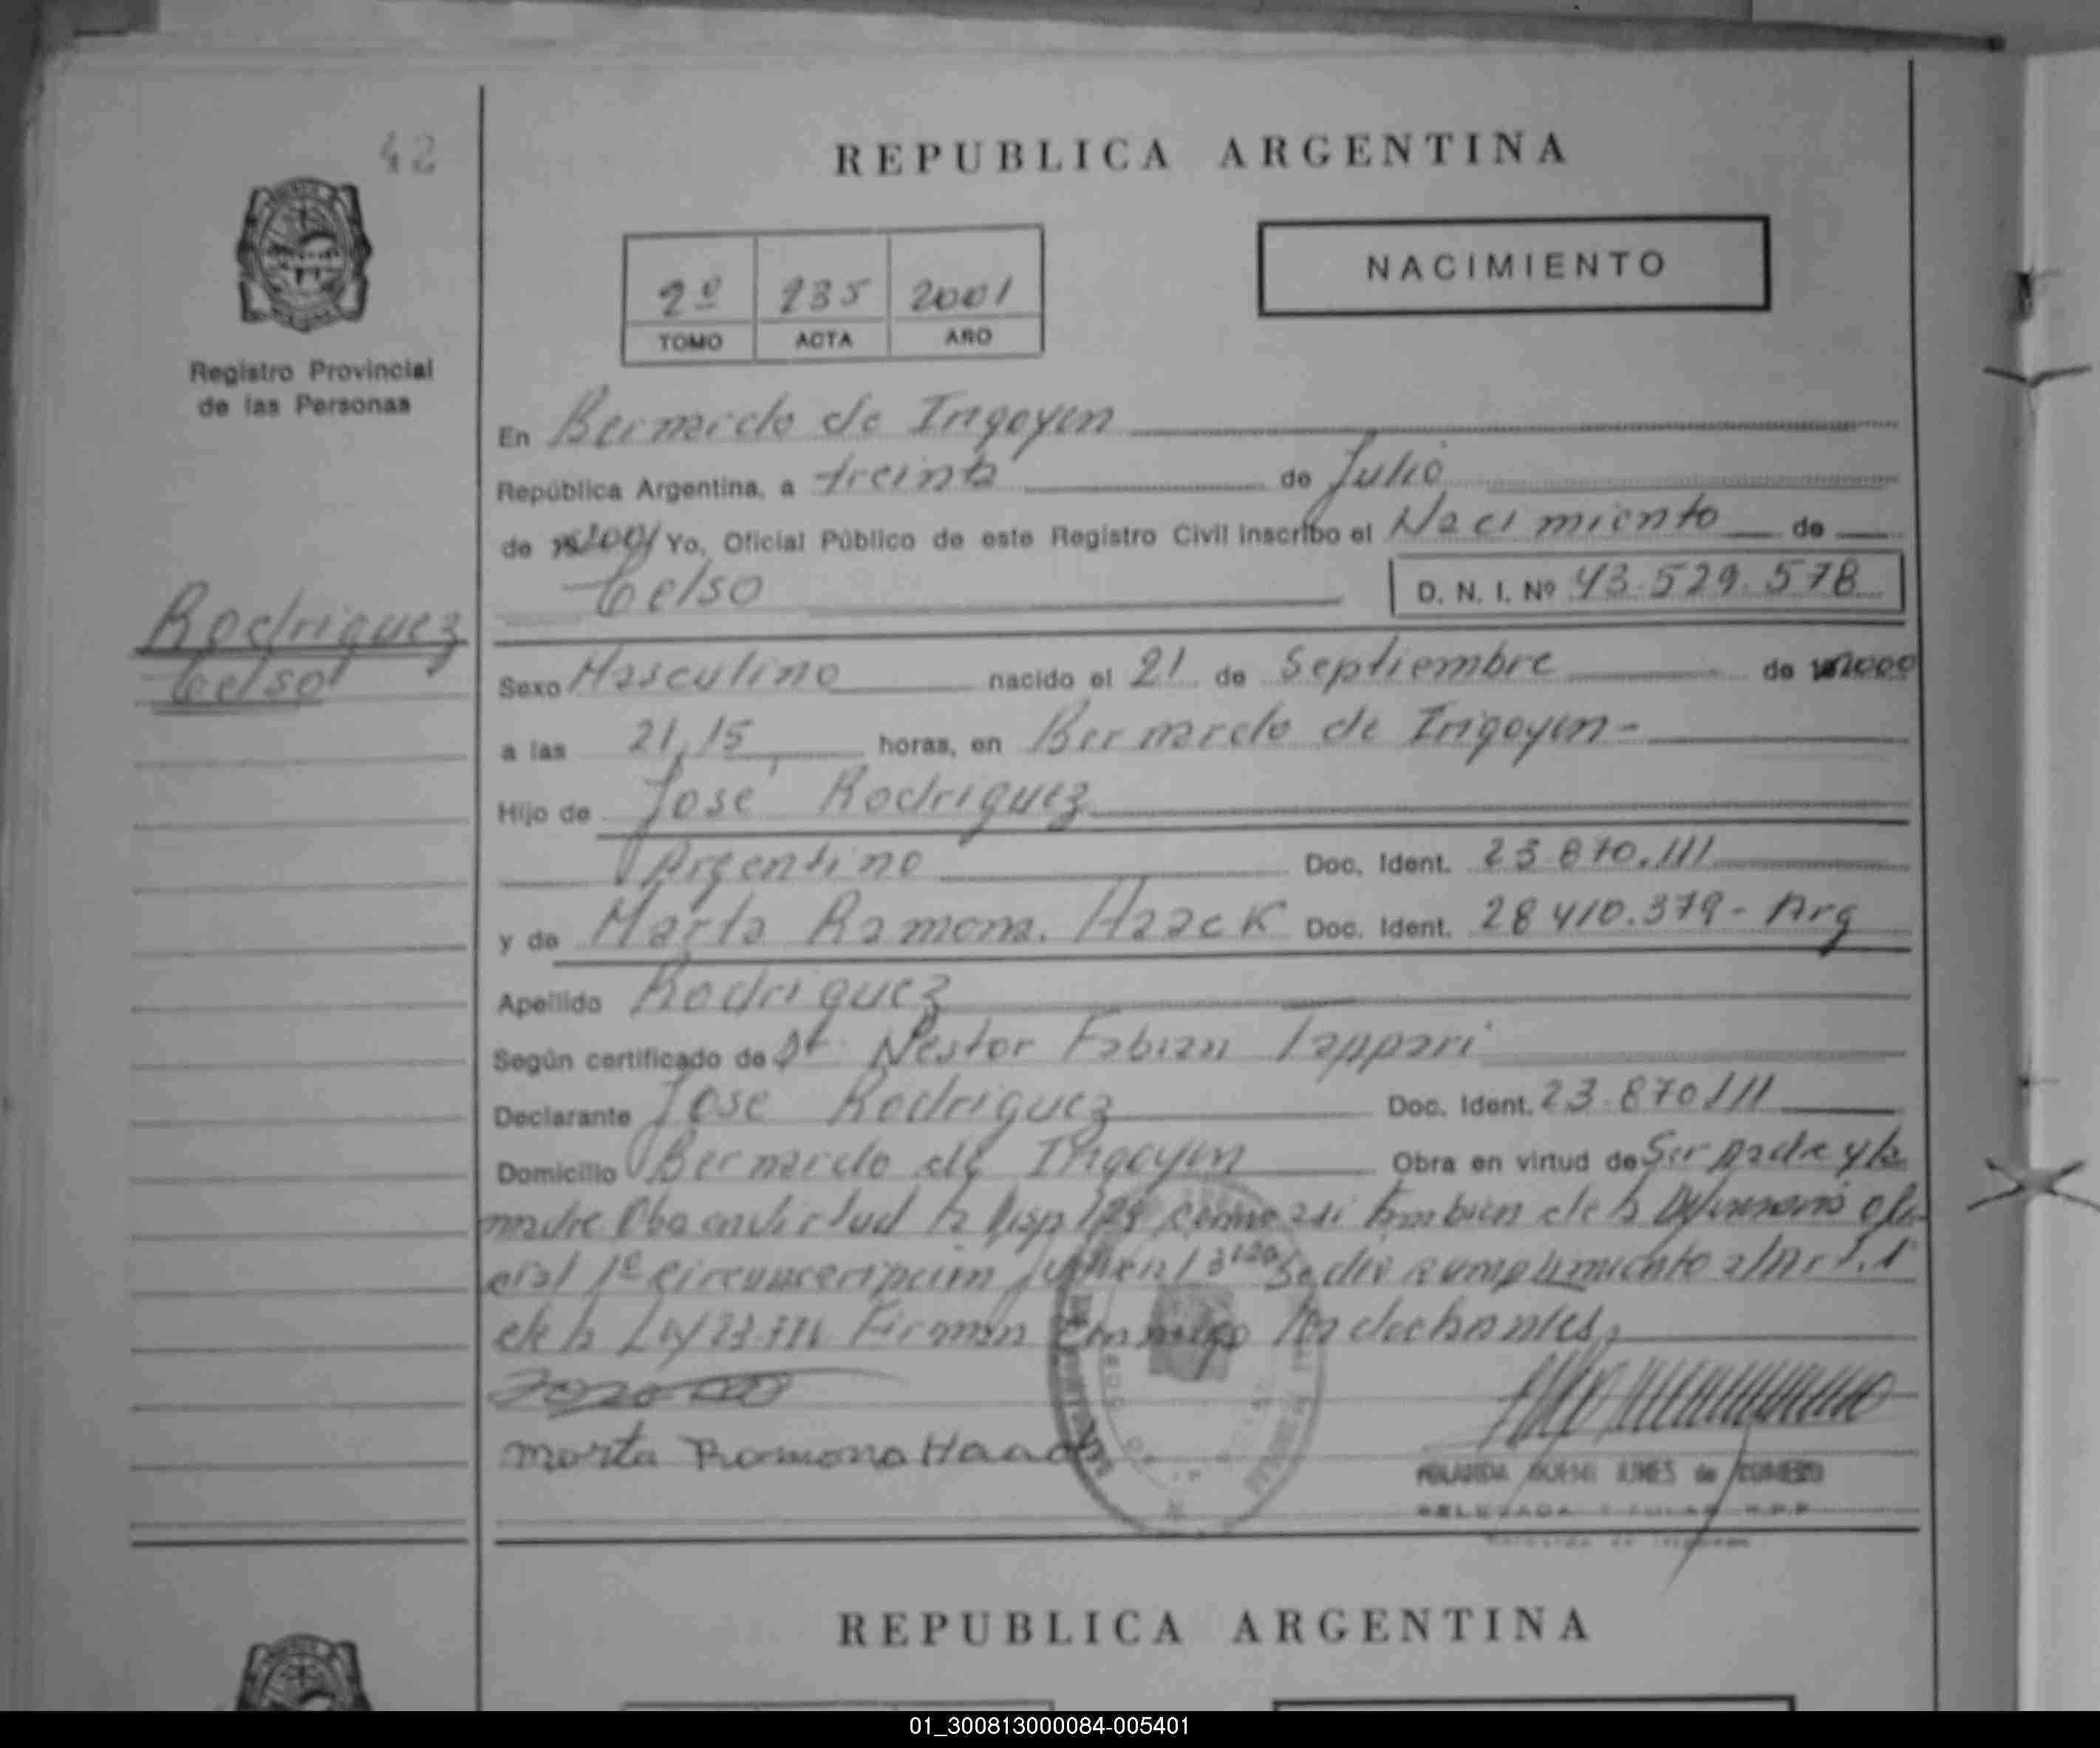 42
REPUBLICA ARGENTINA
NACIMIENTO
2º 235 2001
TOMO ACTA AÑO
Registro Provincial
de las Personas
En Bernardo de Irigoyen
República Argentina, a treinta de Julio
de 2001 Yo, Oficial Público de este Registro Civil inscribo el Nacimiento de
Celso D. N. I. Nº 43.529.578
Rodriguez
Celso
Sexo Masculino nacido el 21 de Septiembre de 2000
a las 21,15 horas, en Bernardo de Irigoyen-
Hijo de José Rodriguez
Argentino Doc. Ident. 23.870.111
y de Marta Ramona. Haack Doc. Ident. 28 410.379- Arg
Apellido Rodriguez
Según certificado de Dr. Nestor Fabian Tappari
Declarante Jose Rodriguez Doc. Ident. 23.870111
Domicilio Bernardo de Irigoyen Obra en virtud de Ser padre y la
madre la Disp como asi tambien de la
1º circunscripción se dio cumplimiento
de la Ley Firman los declarantes,
Marta Ramona Haack
de ROMERO
DELEGADA TITULAR R.P.P.
REPUBLICA ARGENTINA
01_300813000084-005401